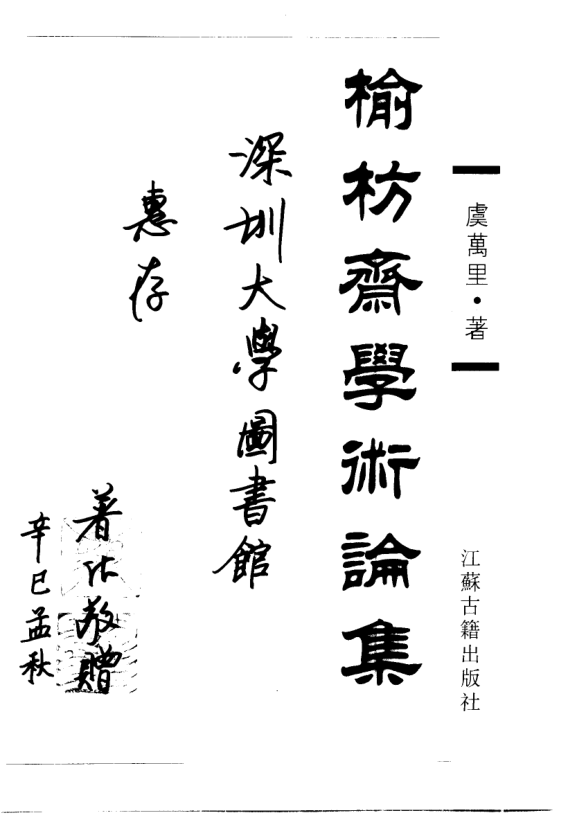 虞萬里·著
江蘇古籍出版社
榆枋齋學術論集
深圳大學圖書館
惠存
著作敬贈
辛巳孟秋